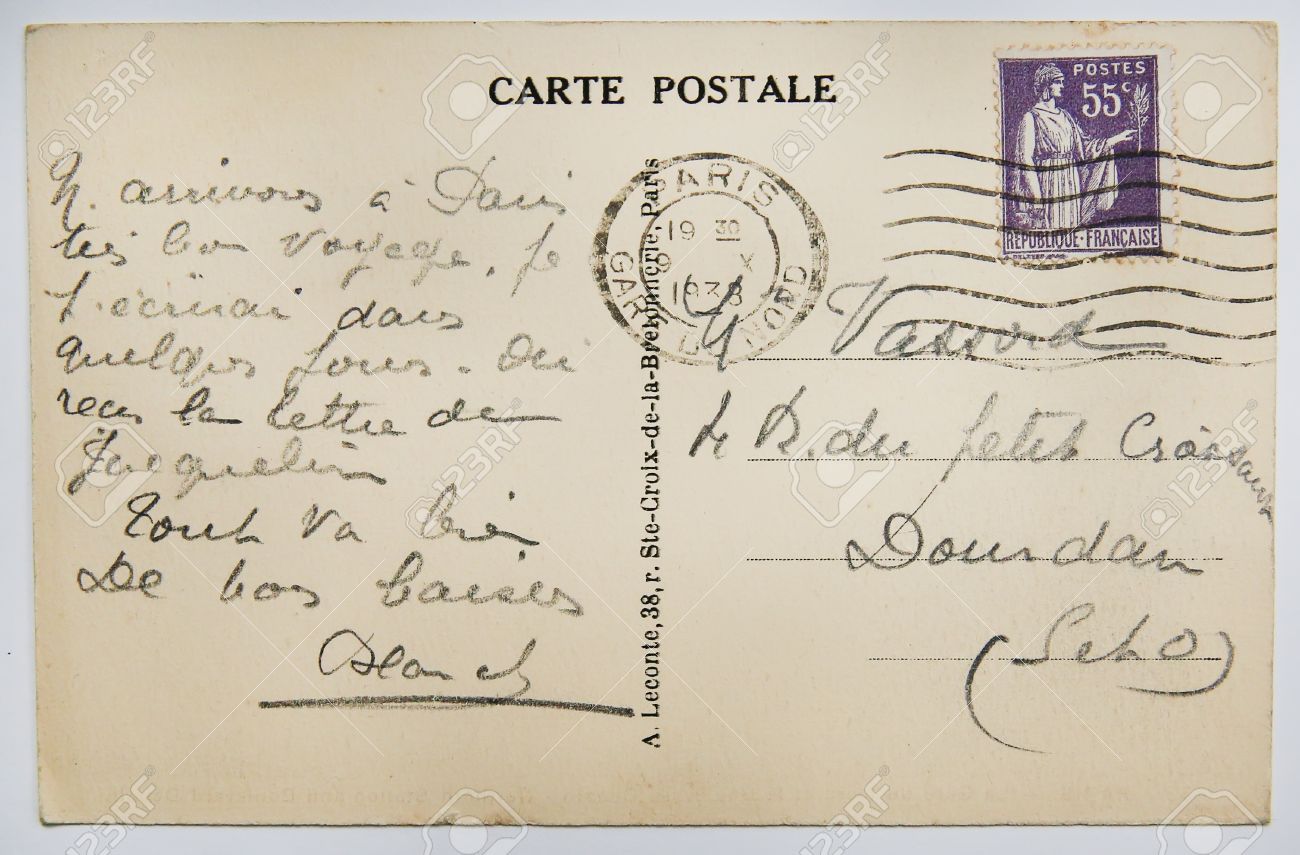 CARTE POSTALE
POSTES
55c
RÉPUBLIQUE-FRANÇAISE
PARIS
GARE DU NORD
19 30
9 X
1938
N. arrivons à Paris
très bon voyage. Je
t'écrirai dans
quelques jours.
reçu la lettre de
Jacqueline
Tout va bien
De bons baisers
Blanch
A. Leconte, 38, r. Ste-Croix-de-la-Bretonnerie, Paris
M Vassord
R. du petit Croissant
Dourdan
(S et O)
123RF